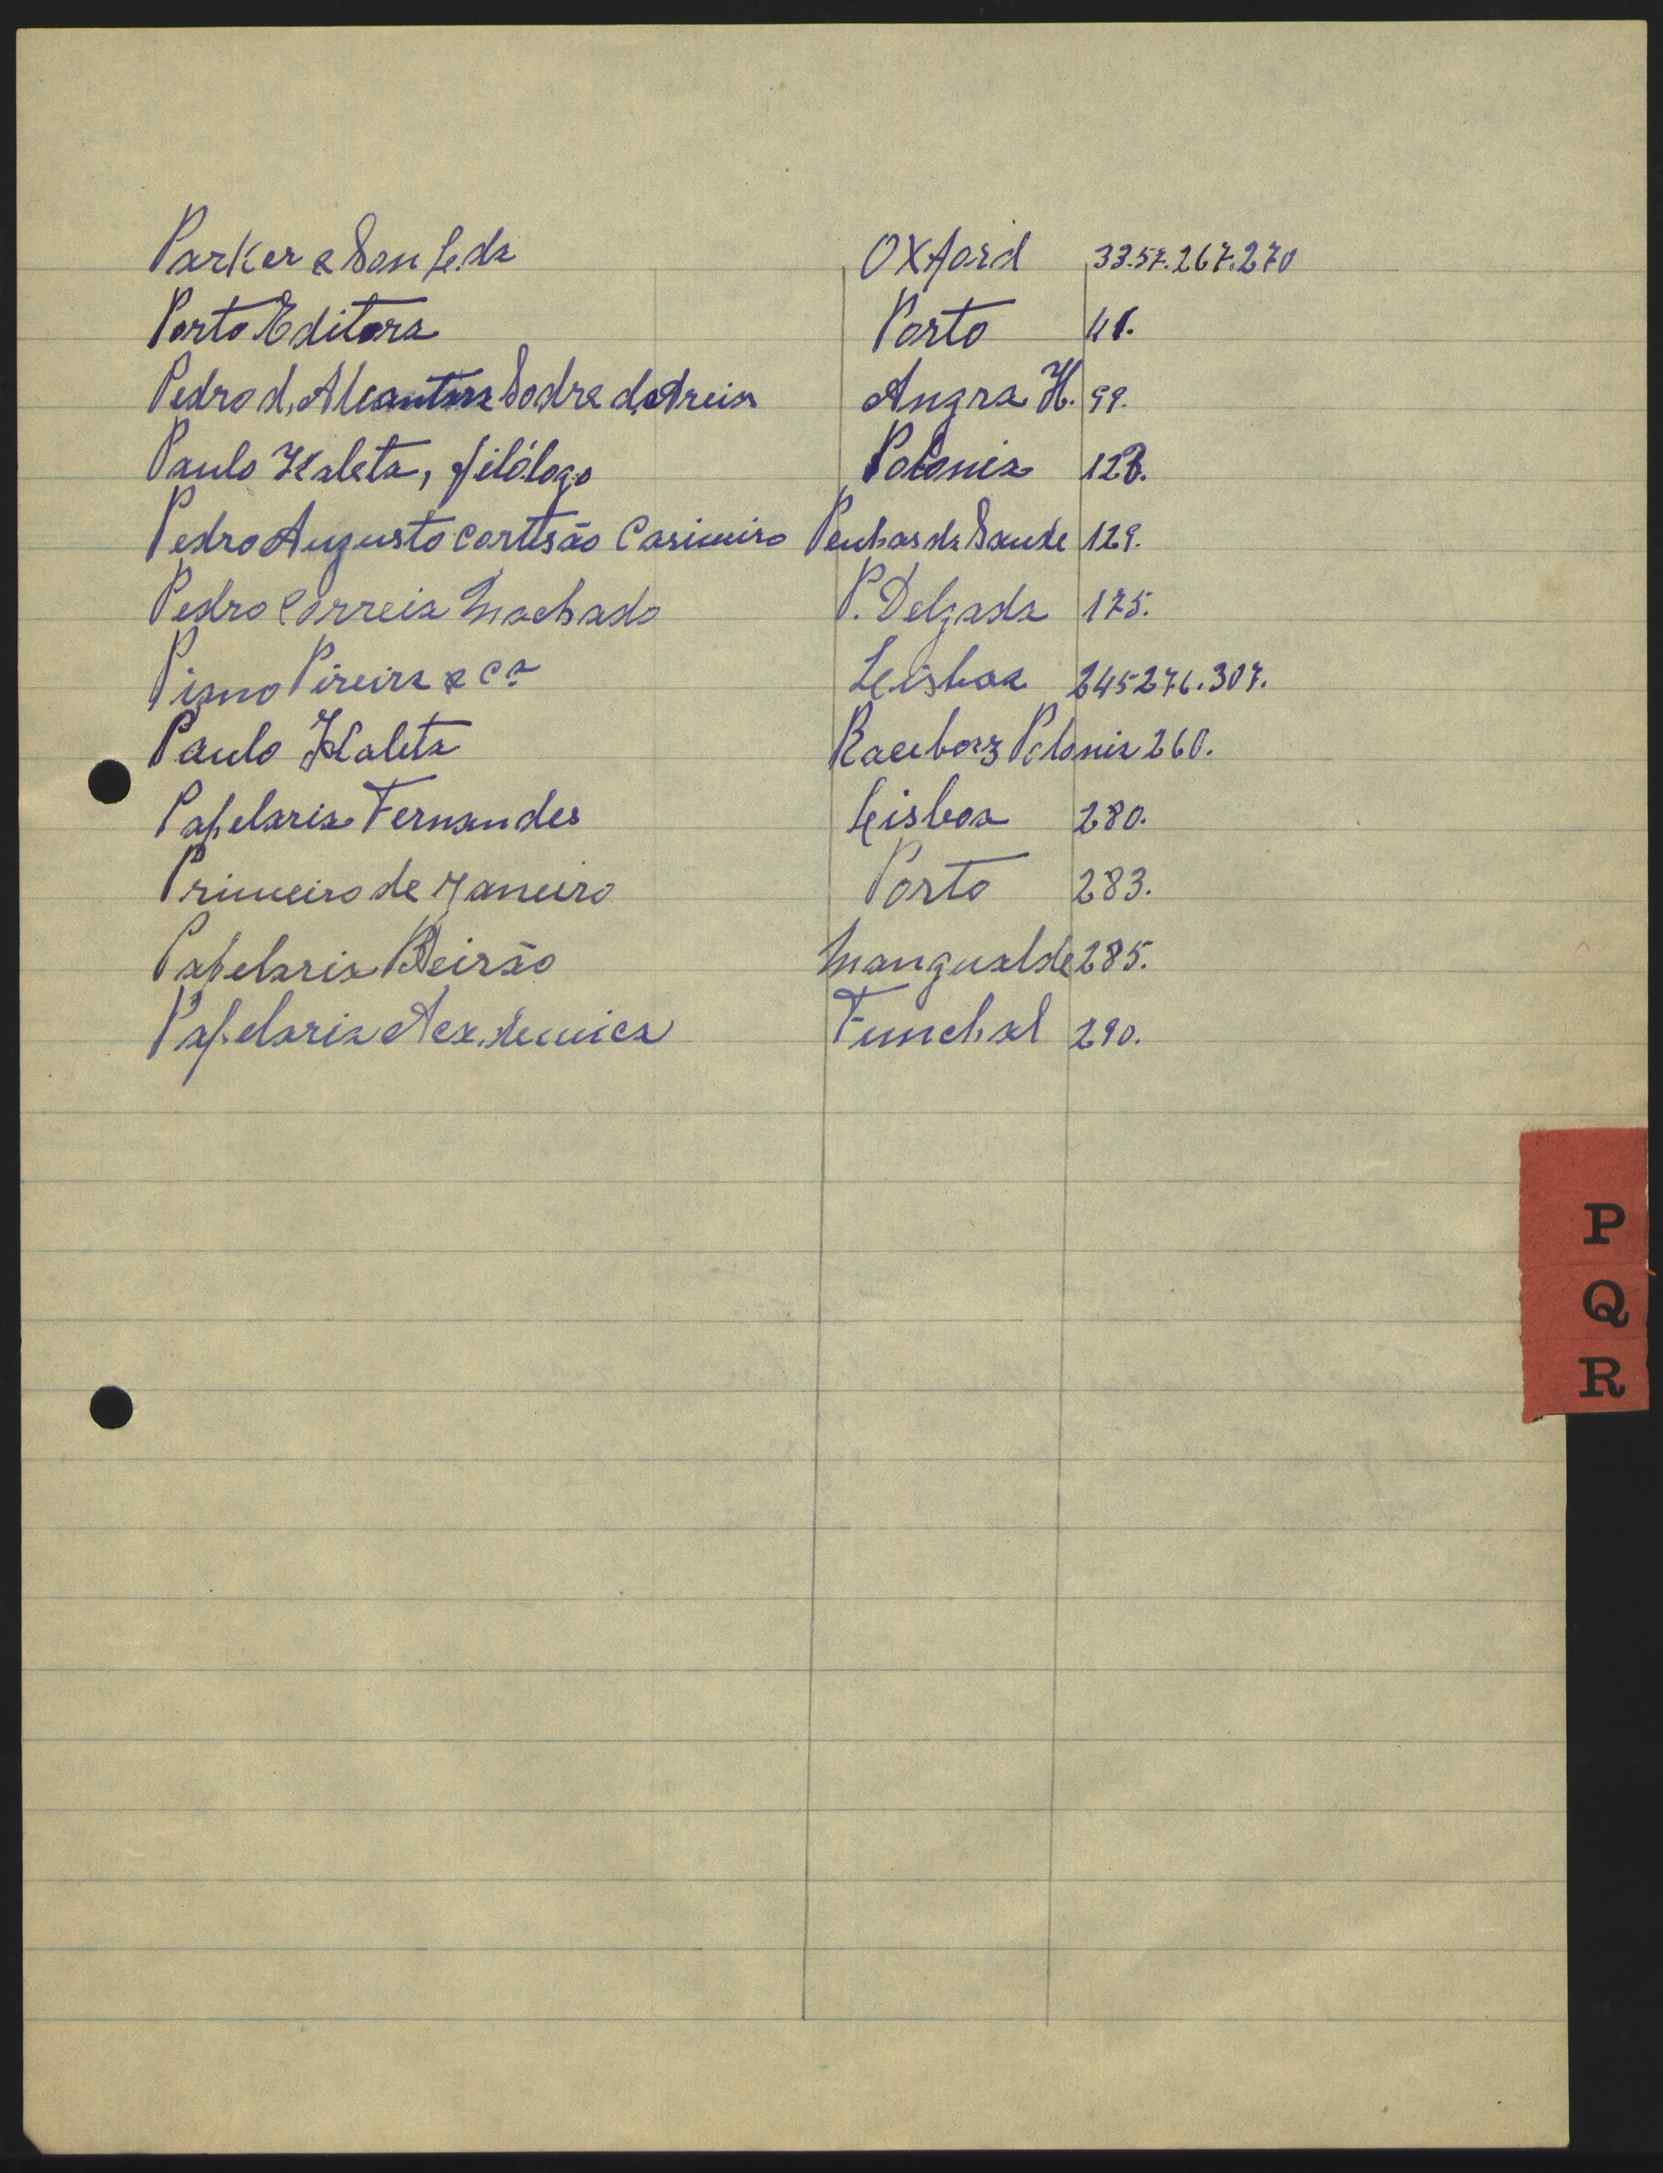 Parker & Son L.da Oxford 33.57.267.270
Porto Editora Porto 41.
Pedro d, Alcantara Sodre de Areia Angra H. 99.
Paulo Kaleta, filólogo Polonia 128.
Pedro Augusto Cortesão Casimiro Penhas da Saude 129.
Pedro Correia Machado P. Delgada 175.
Pismo Pireira & Cª Leisboa 245 276.307.
Paulo Kaleta Raciborz Polonia 260.
Papelaria Fernandes Leisboa 280.
Primeiro de Janeiro Porto 283.
Papelaria Beirão Mangualde 285.
Papelaria Academica Funchal 290.
P
Q
R